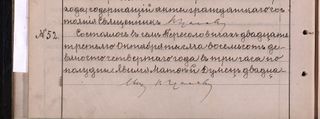 хода, содержащій акты гражданскаго сос
тоянія Священникъ
№52. Состоялось въ гминѣ Пересоловицахъ двадцать
третьяго Октября тысяча восемьсотъ де-
вяносто четвертаго года въ три часа по
полудни. Явился Матвѣй Думенъ двадца-